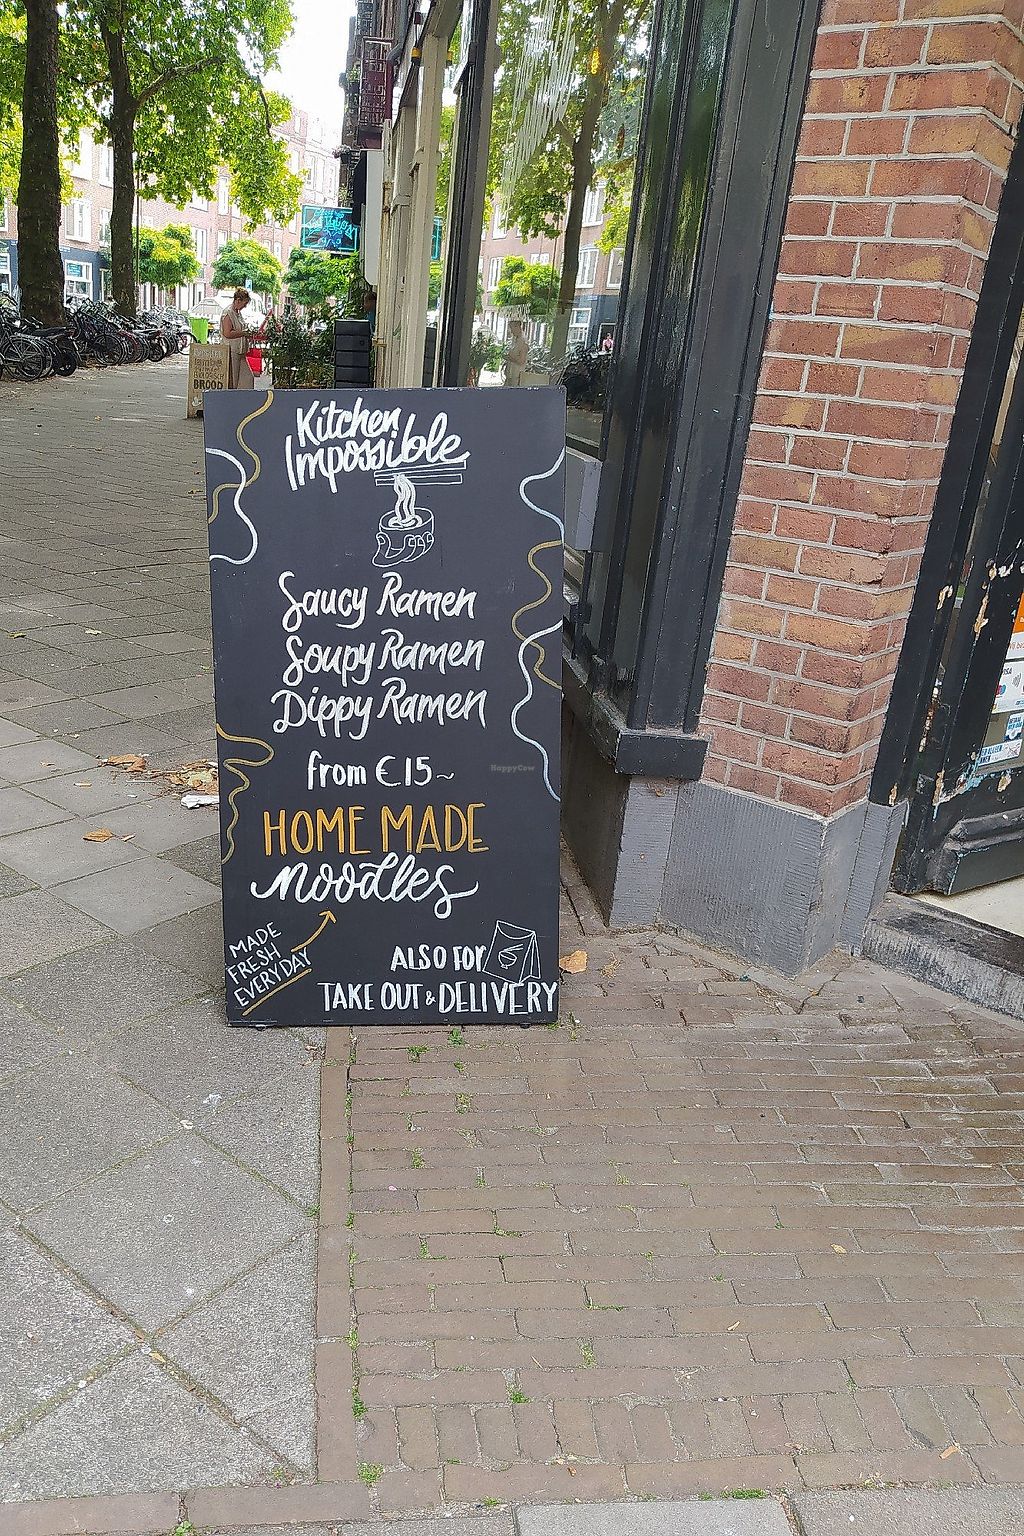 Kitchen
Impossible
Saucy Ramen
Soupy Ramen
Dippy Ramen
from €15~
HOME MADE
noodles
MADE
FRESH
EVERYDAY
ALSO FOR
TAKE OUT & DELIVERY
BROOD
HappyCow
VISA